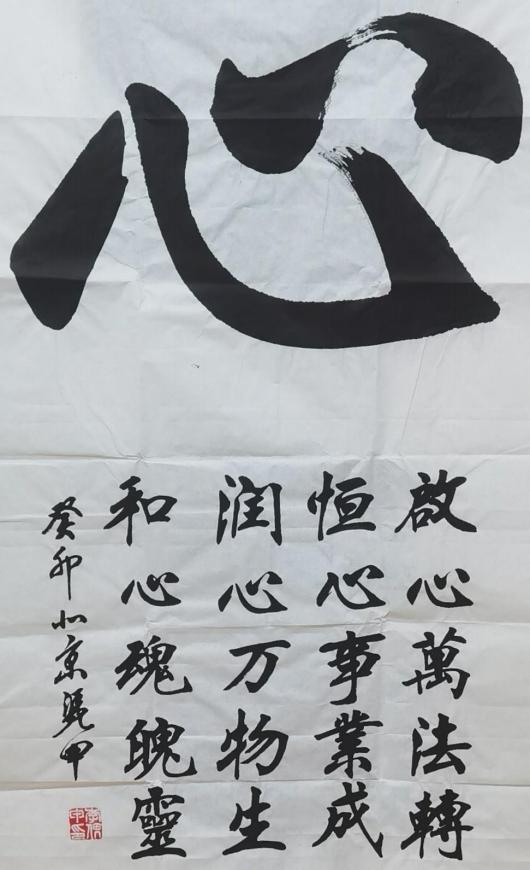 心
啟心萬法轉
恒心事業成
润心万物生
和心魂魄靈
癸卯北京
甲